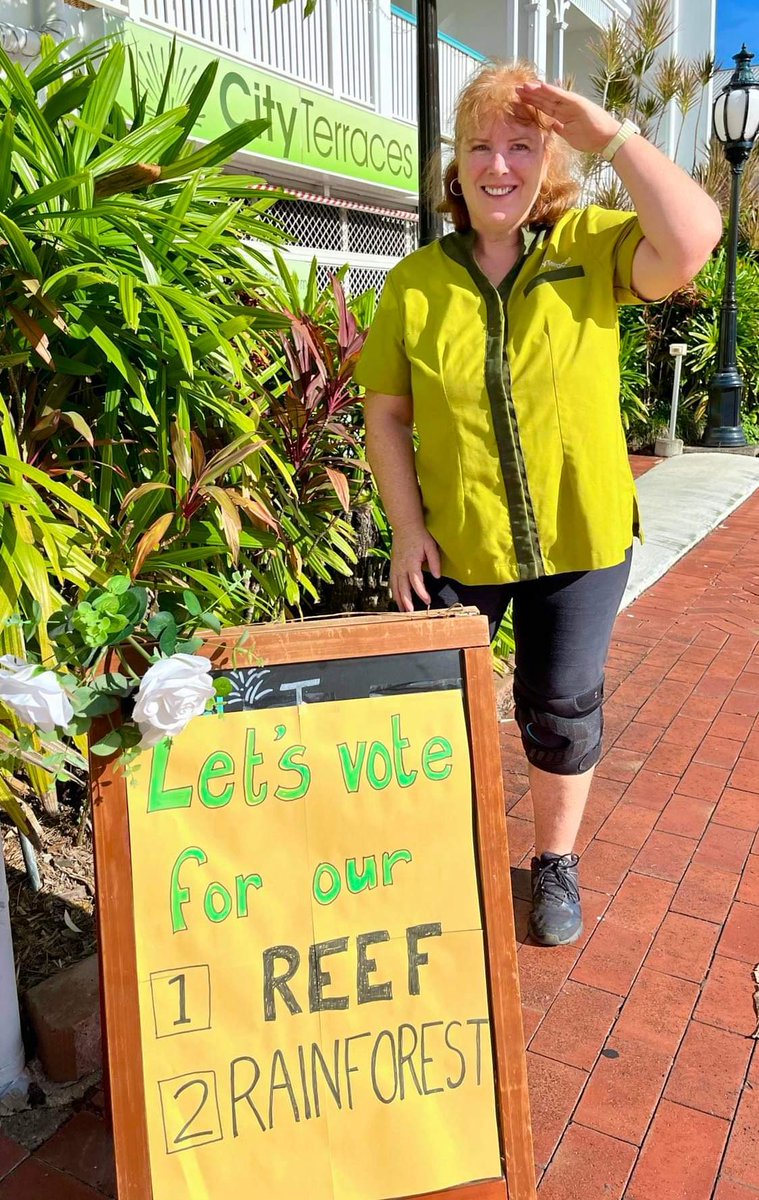 City Terraces
Let's vote
for our
1 REEF
2 RAINFOREST